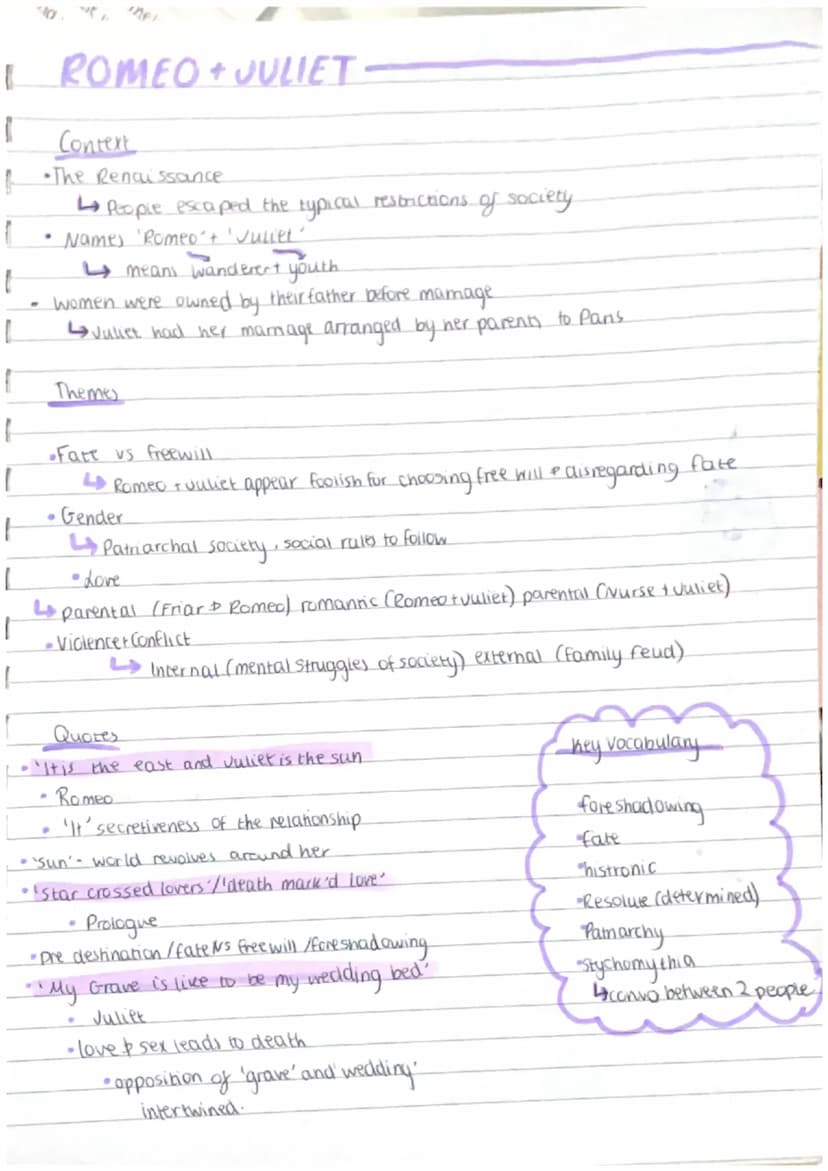 ROMEO + JULIET
Context
•The Renaissance
↳ People escaped the typical restrictions of society
• Names 'Romeo' + 'Juliet'
↳ means wanderer + youth
- Women were owned by their father before marriage
↳ Juliet had her marriage arranged by her parents to Paris
Themes
•Fate vs freewill
↳ Romeo + Juliet appear foolish for choosing free will & disregarding fate
• Gender
↳ Patriarchal society, social rules to follow
• Love
↳ parental (Friar & Romeo) romantic (Romeo + Juliet) parental (Nurse + Juliet)
• Violence + Conflict
↳ Internal (mental struggles of society) external (family feud)
Quotes
• 'It is the east and Juliet is the sun
• Romeo
• 'It' secretiveness of the relationship
• 'sun' - world revolves around her
• 'Star crossed lovers'/'death mark'd love'
• Prologue
• pre destination/fate vs freewill/foreshadowing
• 'My Grave is like to be my wedding bed'
• Juliet
• love & sex leads to death
• opposition of 'grave' and 'wedding'
intertwined.
key vocabulary
foreshadowing
•fate
•histronic
•Resolute (determined)
•Patriarchy
•Stychomythia
↳ convo between 2 people